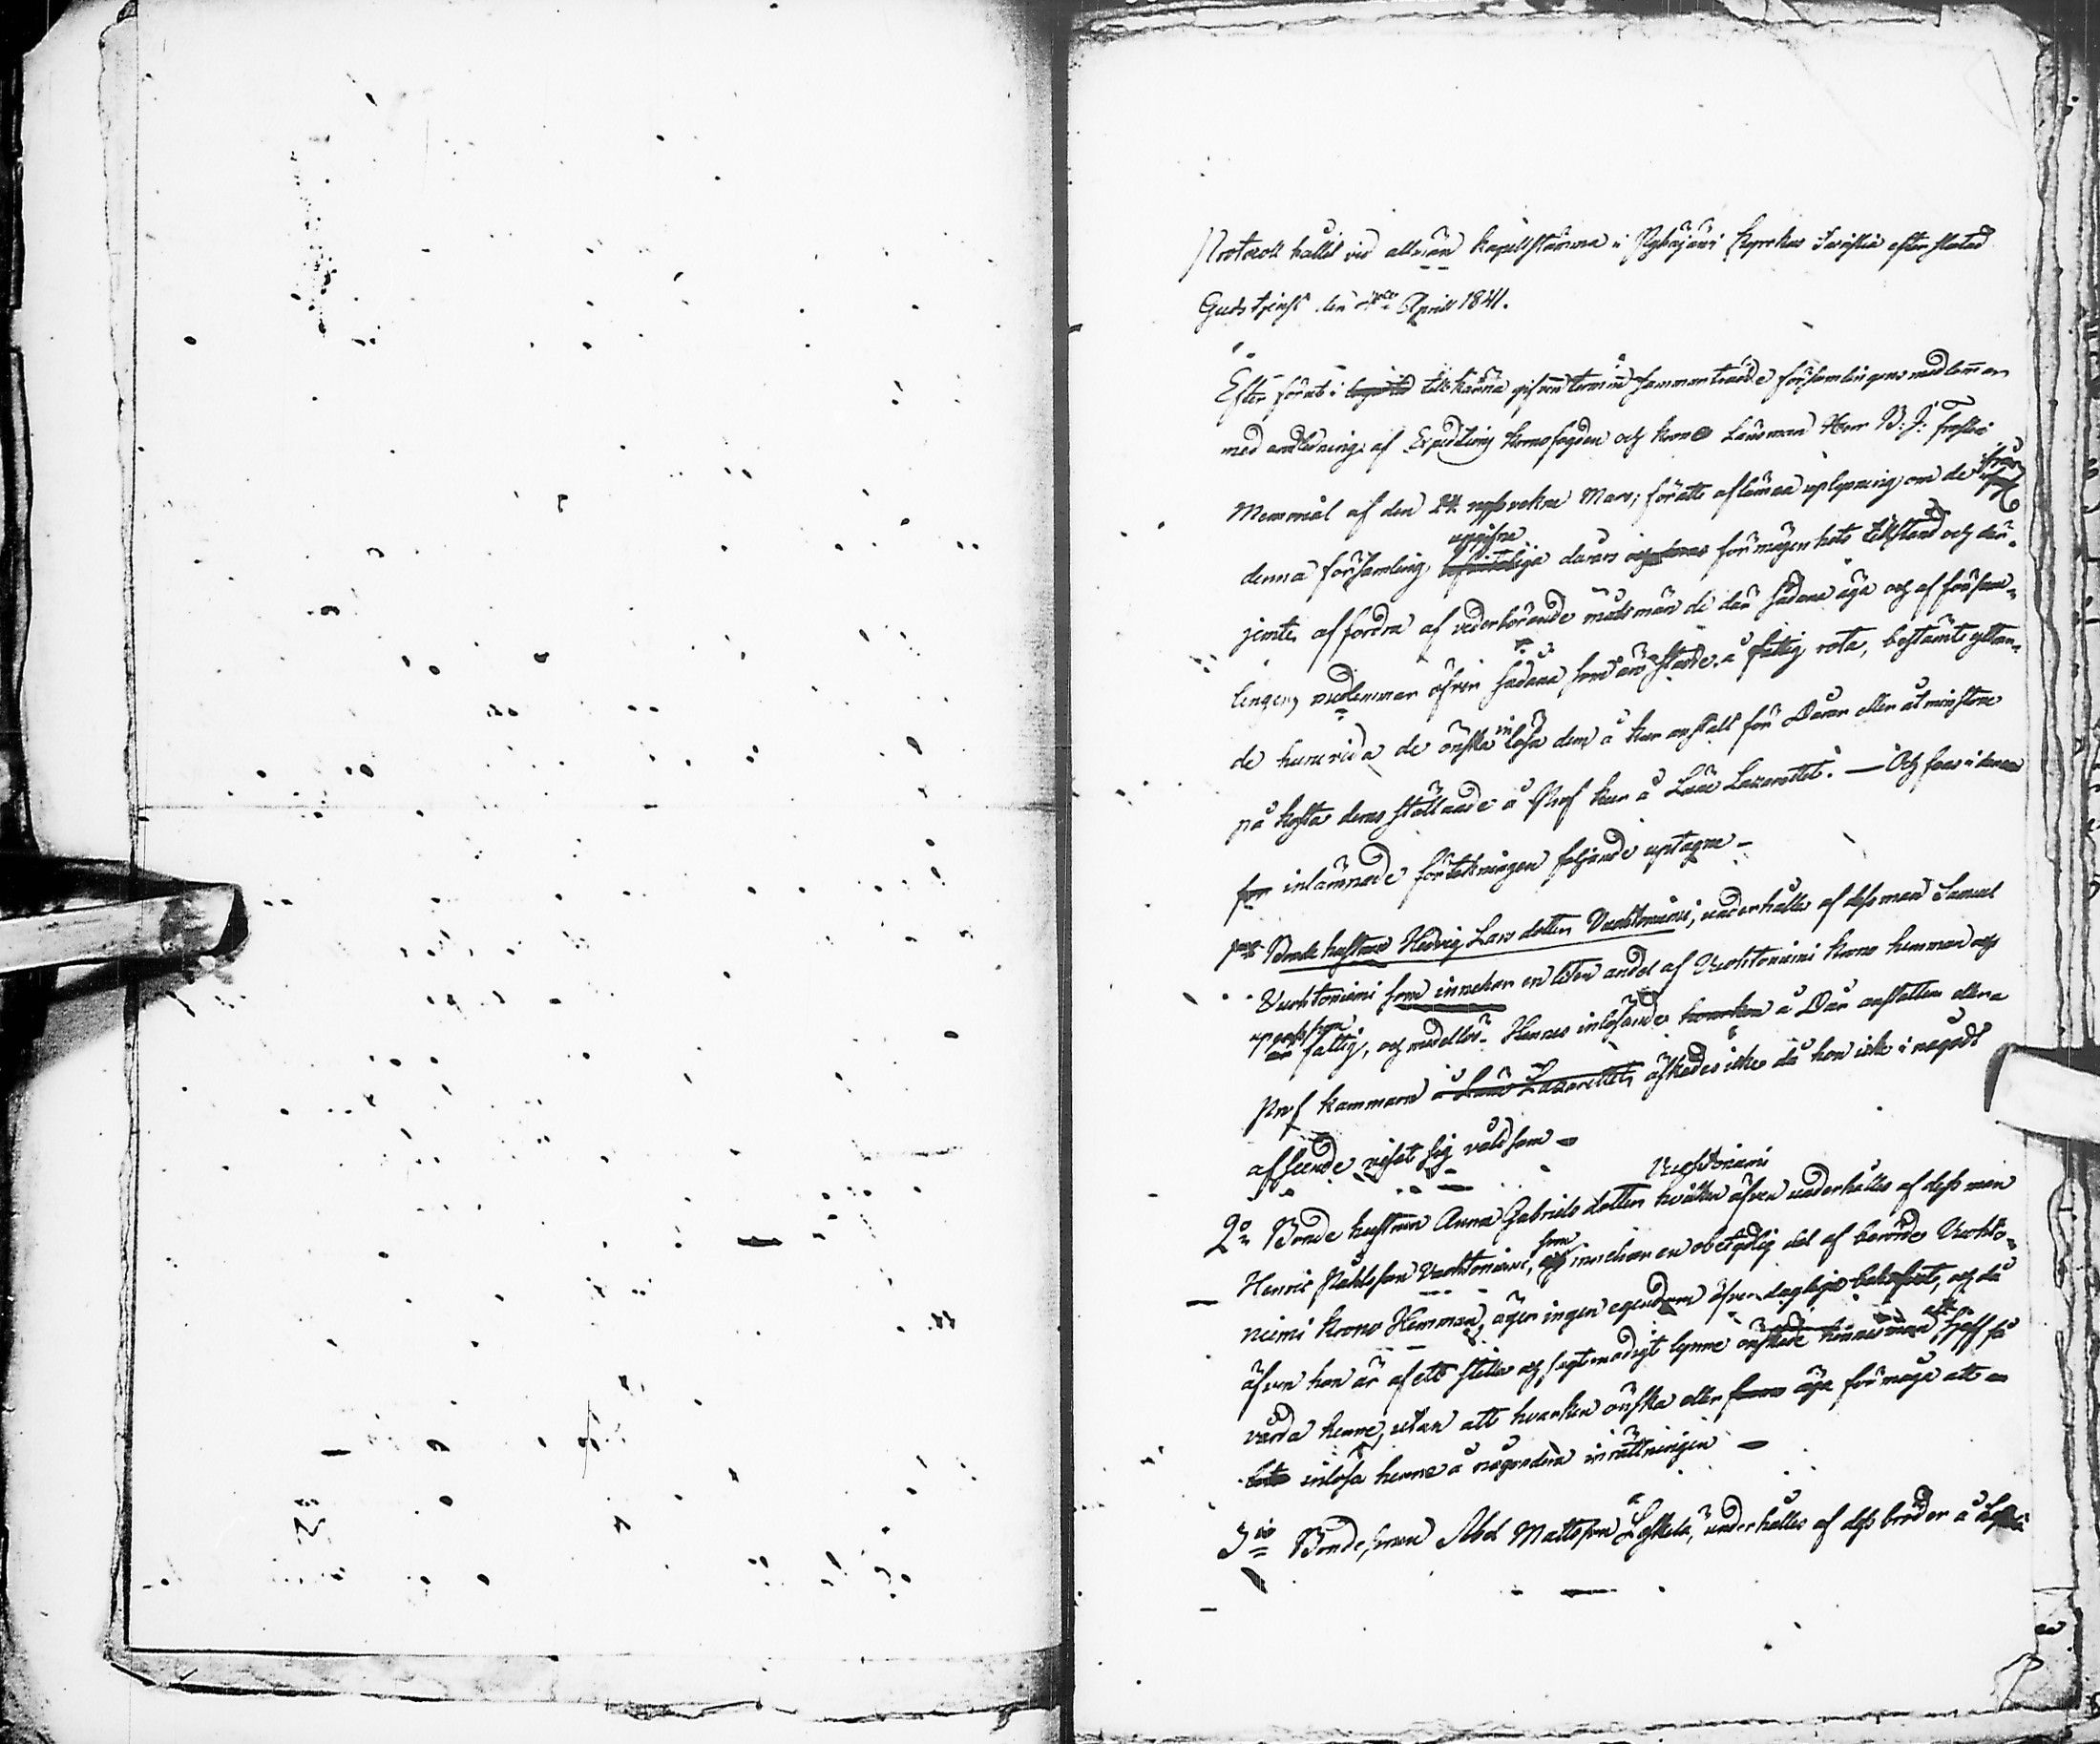 Protocoll hållit vid allmän Kapellstämma i Pyhäjärvi Kyrckas Sacristia efter slutad
Guds tjenst den April 1841.
Efter förut i tillkänna gifven termin sammanträdde församlingens medlemmar
med anledning af Expeditions Kronofogden och Krono Länsman Herr B: J:
Memorial af den 24 nyssvekne Mars; föratt aflämna uplysning om de från
denna församling uppgifne dårars förmögenhets tillstånd och där¬
jemte affordra af vederbörande målsmän de där sådane äga och af försam¬
lingens medlemmar öfver sådana som äro å fattig rota, bestämt yttran¬
de huruvida de önska inlösa dem å kur anstalt för Dårar eller åtminstone
på kosta deras ställande å Prof kur å Läne Lazarettet. — Och som i denna
inlämnade förtekningen följande uptagne –
1mo Bonde hustrun Hedvig Lars dotter Vuohtoniemi, underhålles af dess man Samuel
Vuohtoniemi som innehar en liten andel af Vuohtoniemi Krono hemman och
är fattig, och medellös. Hennes inlösande hvarken å Dår anstalten eller a
Prof kammare å Läne Lazarettet, äskades icke då hon icke i något
afseende visat sig våldsam –
Vuohtoniemi
2o Bonde hustrun Anna Gabriels dotter hvilken äfven underhålles af dess man
Henric Påhlsson Vuohtoniemi, som innehar en obetydlig del af berörde Vuohto¬
niemi Krono Hemman, äger ingen egendom öfver dagliga behofvet, och då
äfven hon är af ett stilla och sagtmodigt lynne önskade hennes man att sjelf få
vårda henne, utan att hvarken önska eller äga förmåga att
inlösa henne å någondera inrättningen –
3tio Bonde sonen Abel Mattsson Leskelä, underhålles af dess broder å